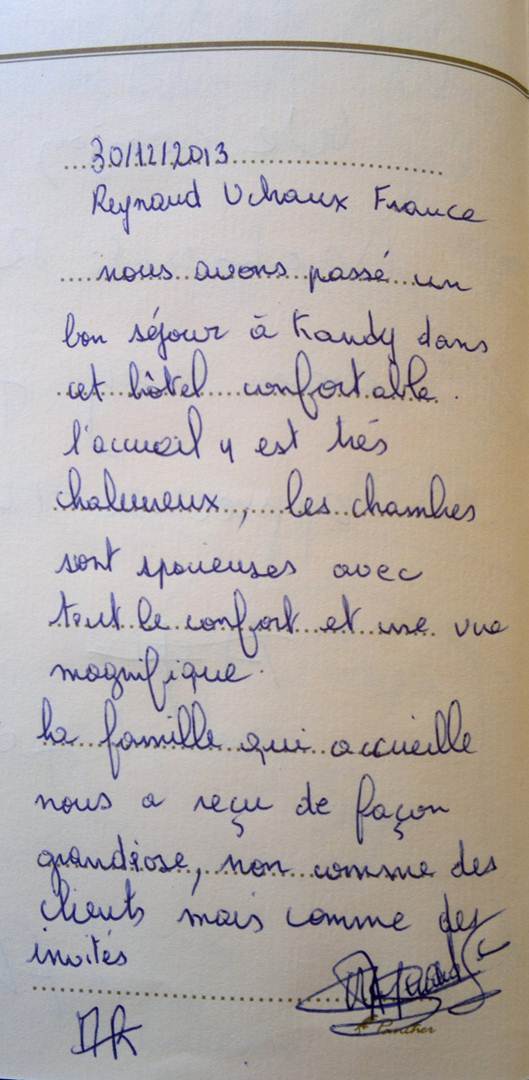 30/12/2013
Reynaud Uchaux France
nous avons passé un
bon séjour à Kandy dans
cet hôtel confortable.
l'accueil y est très
chaleureux, les chambres
sont spacieuses avec
tout le confort et une vue
magnifique.
La famille qui accueille
nous a reçu de façon
grandiose, non comme des
clients mais comme des
invités
Panther